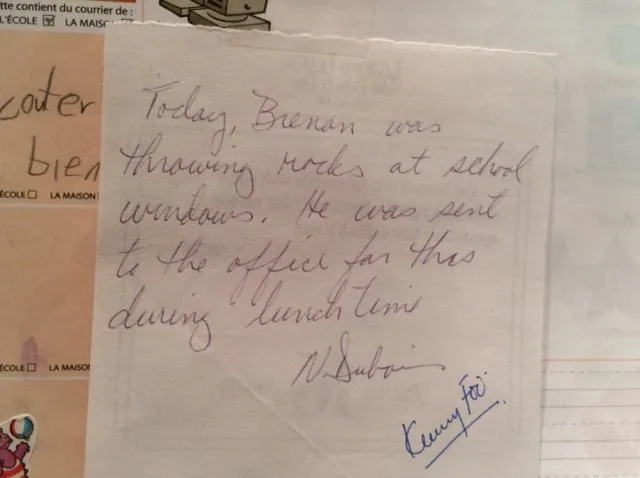 tte contient du courrier de :
L'ÉCOLE ☑ LA MAISON
couter
bien
ÉCOLE ☐ LA MAISON
ÉCOLE ☐ LA MAISON
Today, Brenan was
throwing rocks at school
windows. He was sent
to the office for this
during lunch time
N. Dubois
Kenny Foo